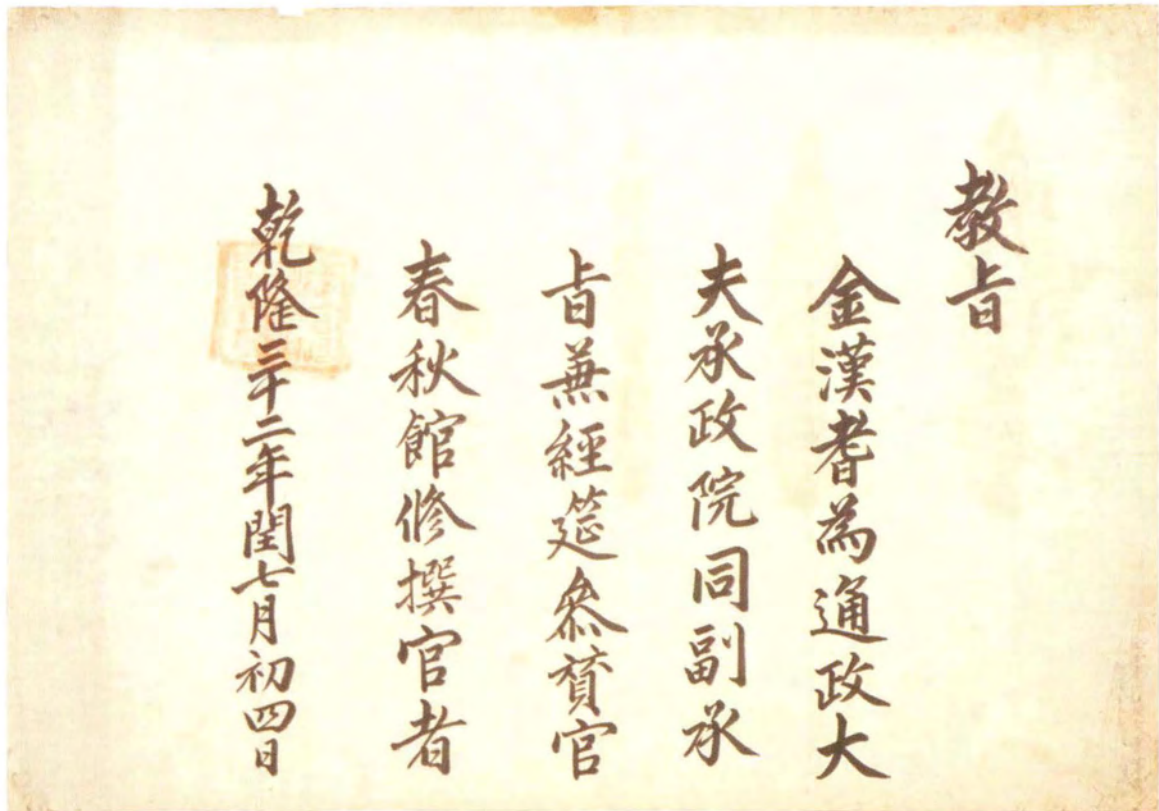 教旨
金漢耆為通政大
夫承政院同副承
旨兼經筵參贊官
春秋館修撰官者
乾隆三十二年閏七月初四日